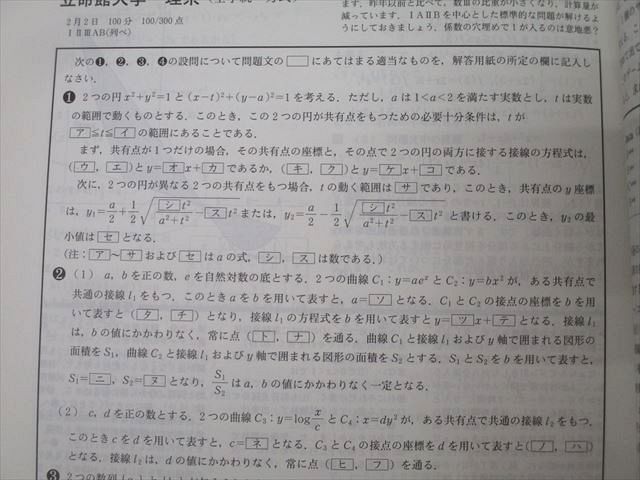 立命館大学 理系
2月2日 100分 100/300点
ⅠⅡⅢAB(列べ)
ます．昨年以前と比べて，数Ⅲの比重が小さくなり，計算量が
減っています．ⅠAⅡBを中心とした標準的な問題が解けるよ
うにしておきましょう．係数の穴埋めで1が入るのは意地悪?
次の❶，❷，❸，❹の設問について問題文の□にあてはまる適当なものを，解答用紙の所定の欄に記入し
なさい．
❶ 2つの円x²+y²=1と(x-t)²+(y-a)²=1を考える．ただし，aは1<a<2を満たす実数とし，tは実数
の範囲で動くものとする．このとき，この2つの円が共有点をもつための必要十分条件は，tが
ア≦t≦イの範囲にあることである．
まず，共有点が1つだけの場合，その共有点の座標と，その点で2つの円の両方に接する接線の方程式は，
(ウ，エ)とy=オx+カであるか，(キ，ク)とy=ケx+コである．
次に，2つの円が異なる2つの共有点をもつ場合，tの動く範囲はサであり，このとき，共有点のy座標
は，y₁=a/2+1/2√(シt²/(a²+t²)-スt²)または，y₂=a/2-1/2√(シt²/(a²+t²)-スt²)と書ける．このとき，y₂の最
小値はセとなる．
(注：ア〜サおよびセはaの式，シ，スは数である．)
❷ (1) a，bを正の数，eを自然対数の底とする．2つの曲線C₁：y=aeˣとC₂：y=bx²が，ある共有点で
共通の接線l₁をもつ．このときaをbを用いて表すと，a=ソとなる．C₁とC₂の接点の座標をbを用
いて表すと(タ，チ)となり，接線l₁の方程式をbを用いて表すとy=ツx+テとなる．接線l₁
は，bの値にかかわりなく，常に点(ト，ナ)を通る．曲線C₁と接線l₁およびy軸で囲まれる図形の
面積をS₁，曲線C₂と接線l₁およびy軸で囲まれる図形の面積をS₂とする．S₁とS₂をbを用いて表すと，
S₁=ニ，S₂=ヌとなり，S₁/S₂はa，bの値にかかわりなく一定となる．
(2) c，dを正の数とする．2つの曲線C₃：y=log x/cとC₄：x=dy²が，ある共有点で共通の接線l₂をもつ．
このときcをdを用いて表すと，c=ネとなる．C₃とC₄の接点の座標をdを用いて表すと(ノ，ハ)
となる．接線l₂は，dの値にかかわりなく，常に点(ヒ，フ)を通る．